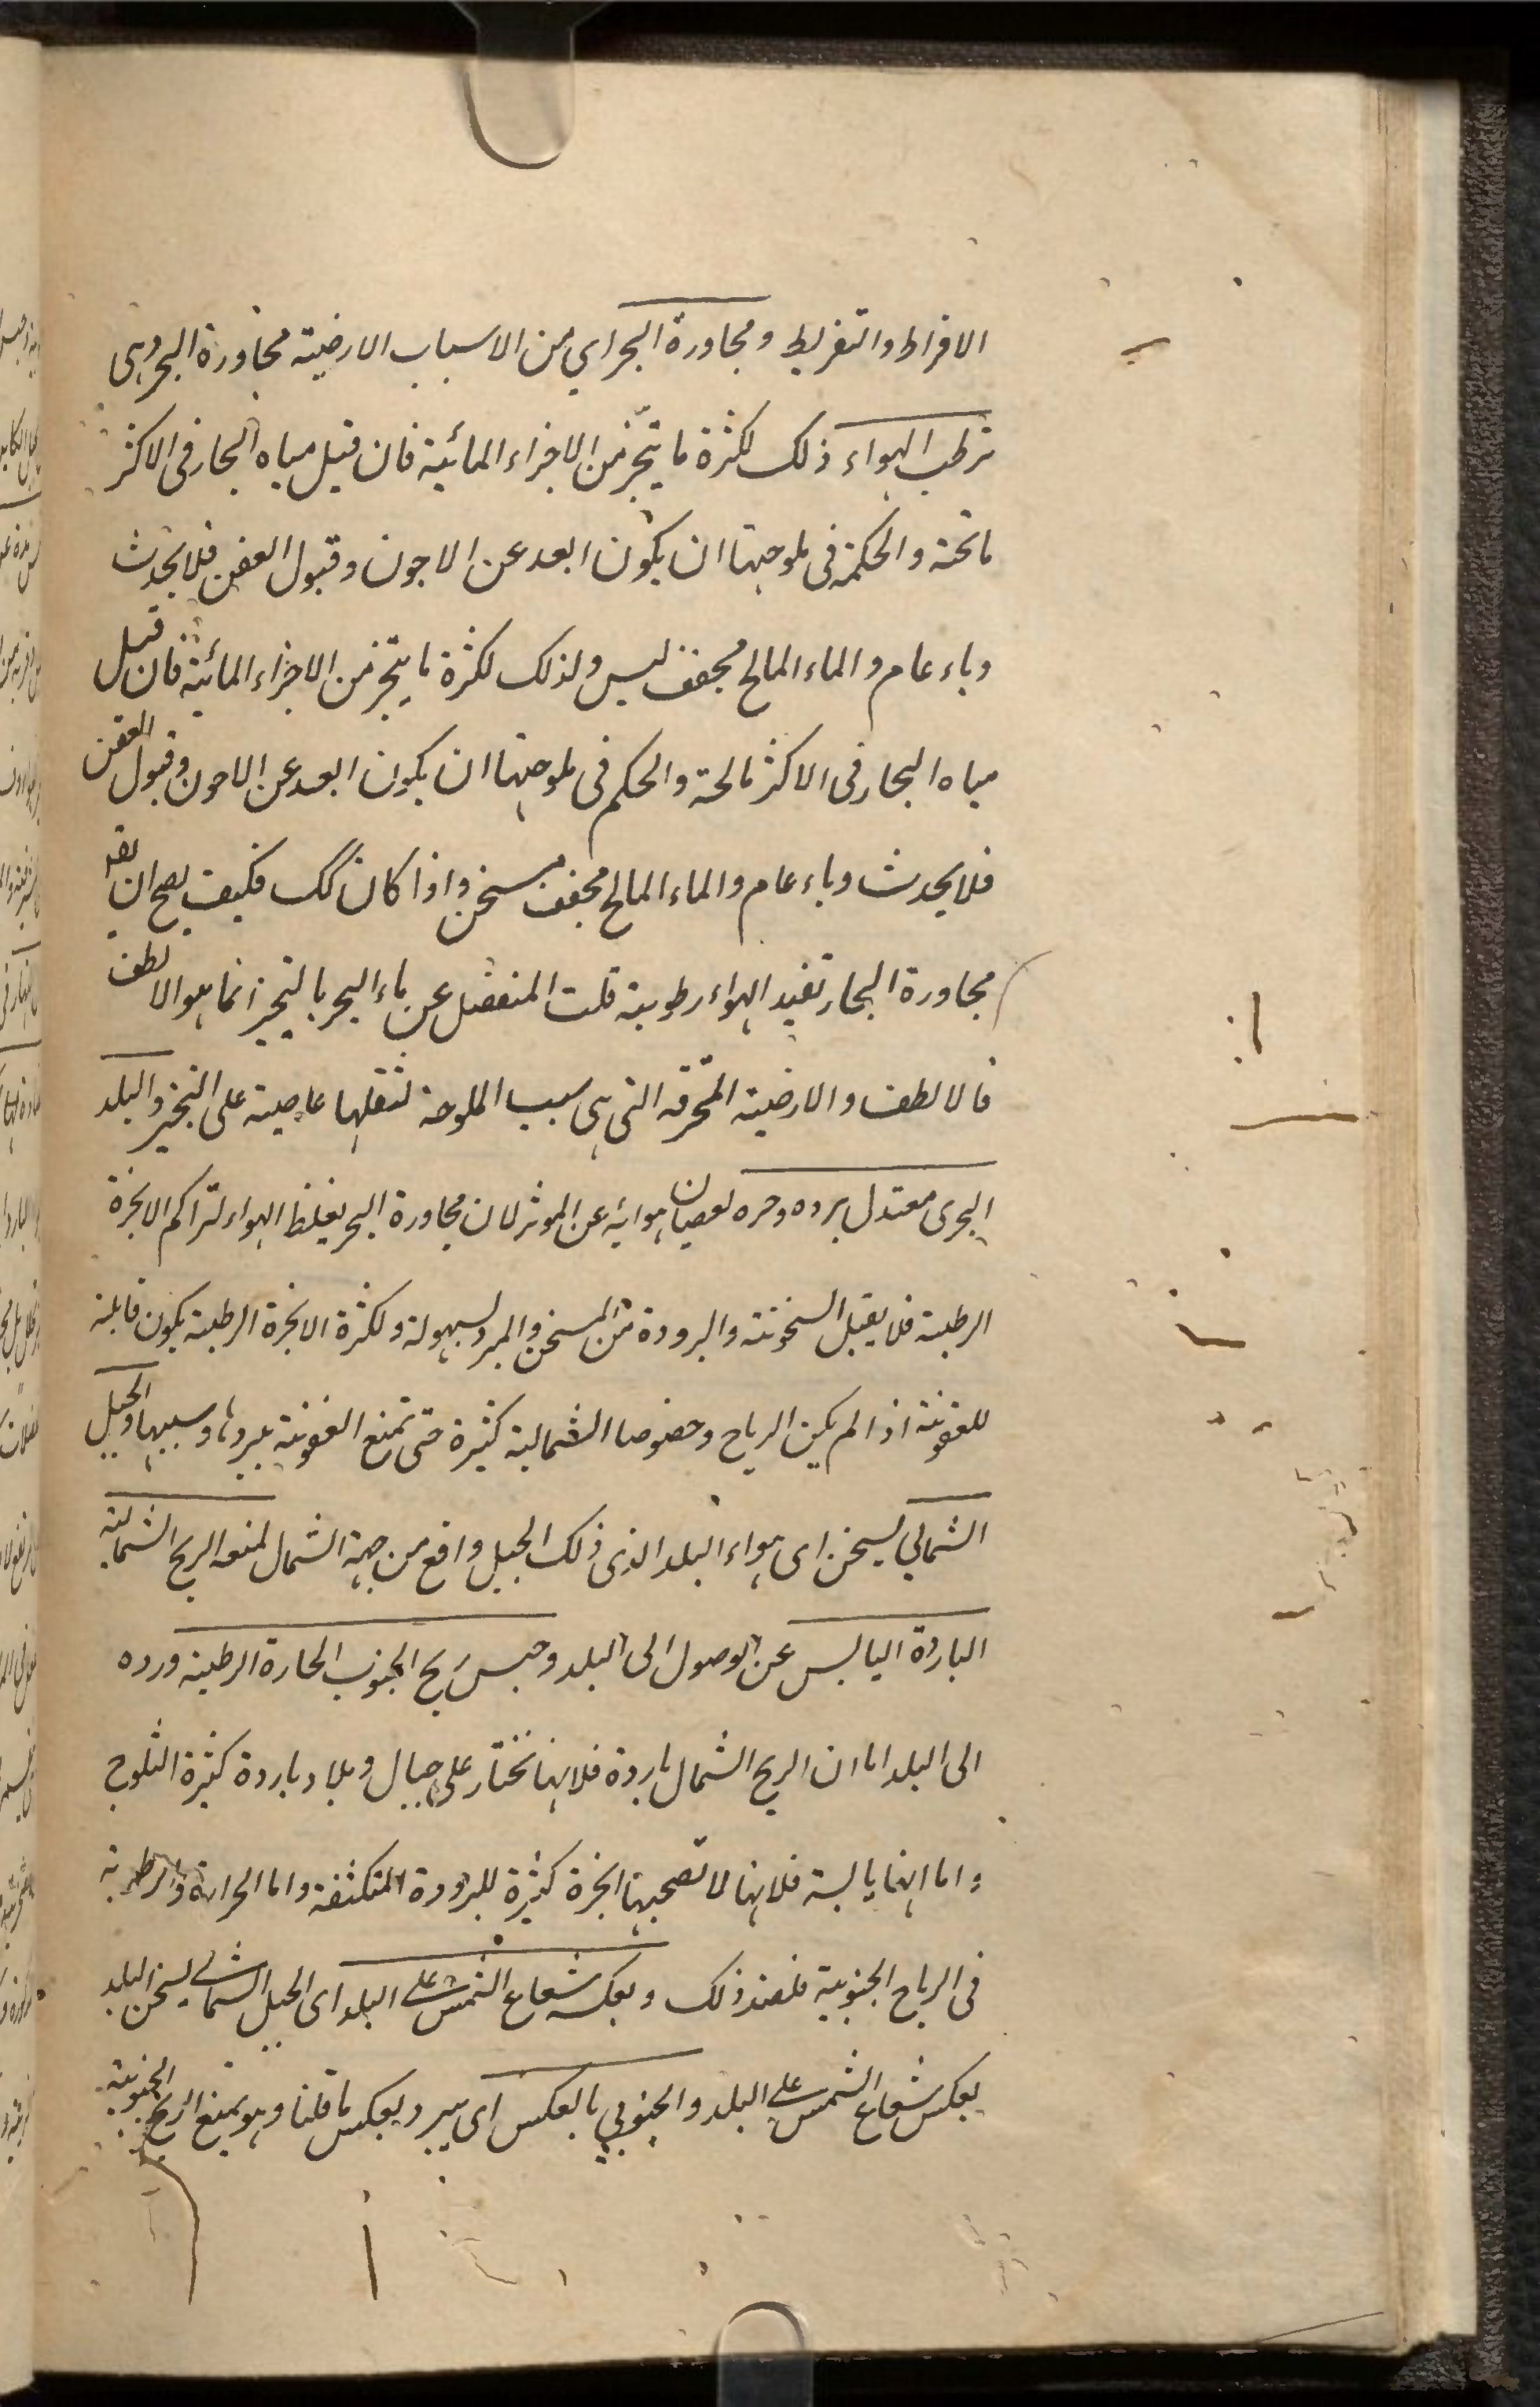 الافراط والتفريط ومجاورة البحر اي من الاسباب الارضية مجاورة البحر وهى
ترطب الهواء ذلك لكثرة ما يتبخر من الاجزاء المائية فان قيل مياه البحار فى الاكثر
مالحة والحكمة فى ملوحتها ان يكون ابعد عن الاجون وقبول العفن فلا يحدث
وباء عام والماء المالح مجفف ليس ولذلك لكثرة ما يتبخر من الاجزاء المائية فان قيل
مياه البحار فى الاكثر مالحة والحكم فى ملوحتها ان يكون ابعد عن الاجون وقبول العفن
فلا يحدث وباء عام والماء المالح مجفف مسخن واذا كان كك فكيف يصح ان يقو
مجاورة البحار تفيد الهواء رطوبة قلت المنفصل عن ماء البحر بالتبخير انما هو الالطف
فالالطف والارضية المحترقة التى هى سبب الملوحة لثقلها عاصية على التبخير والبلد
البحرى معتدل برده وحره لعصيان هوائه عن الموثر لان مجاورة البحر يغلظ الهواء لتراكم الابخرة
الرطبة فلا يقبل السخونة والبرودة من المسخن والمبرد لسهولة ولكثرة الابخرة الرطبة يكون قابلة
للعفونة اذا لم يكن الرياح وخصوصا الشمالية كثيرة حتى تمنع العفونة ببردها ويبسها والجبل
الشمالي يسخن اى هواء البلد الذى ذلك الجبل واقع من جهة الشمال لمنعه الريح الشمالية
الباردة اليابس عن الوصول الى البلد وحبس ريح الجنوب الحارة الرطبة ورده
الى البلد اما ان الريح الشمال باردة فلانها تختار على جبال وبلاد باردة كثيرة الثلوج
واما انها يابسة فلانها لا تصحبها ابخرة كثيرة للبرودة المتكثفة واما الحرارة والرطوبة
فى الرياح الجنوبية فلضد ذلك وبعكسه شعاع الشمس على البلد اى الجبل الشمالي يسخن البلد
بعكس شعاع الشمس على البلد والجنوبي بالعكس اى يبرد بعكس ما قلنا وهو يمنع الريح الجنوبية